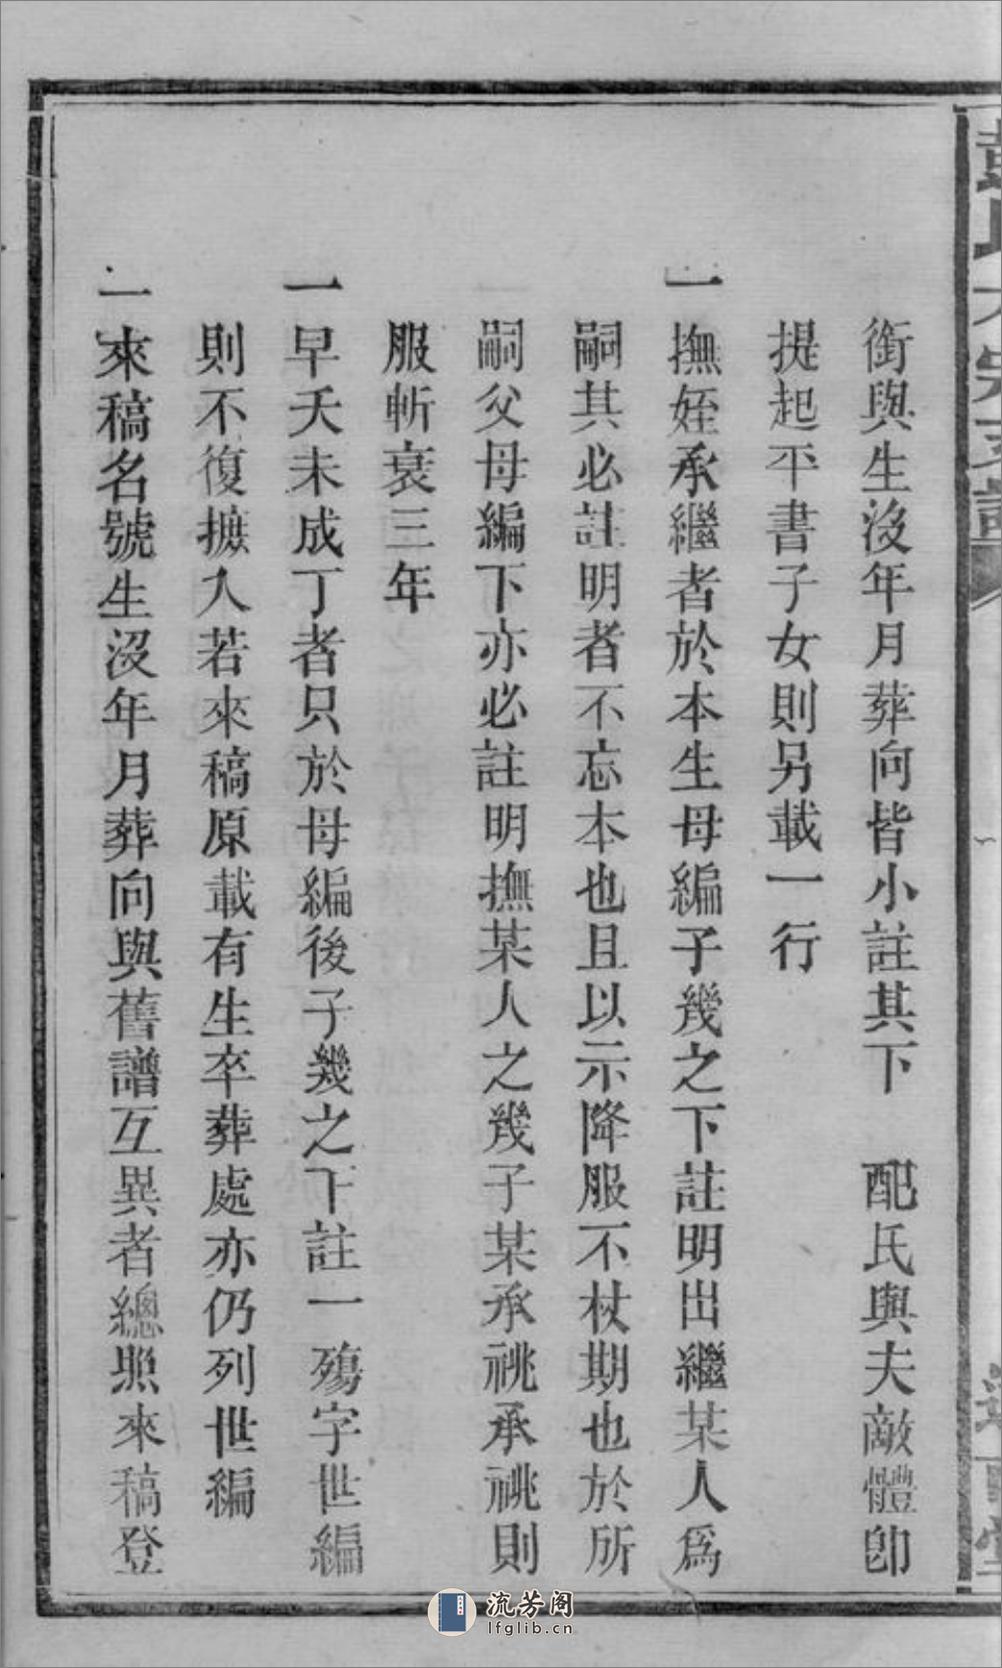 銜與生沒年月葬向皆小註其下　配氏與夫敵體卽
提起平書子女則另載一行
一撫姪承繼者於本生母編子幾之下註明出繼某人爲
嗣其必註明者不忘本也且以示降服不杖期也於所
嗣父母編下亦必註明撫某人之幾子某承祧承祧則
服斬衰三年
一早夭未成丁者只於母編後子幾之下註一殤字世編
則不復摭入若來稿原載有生卒葬處亦仍列世編
一來稿名號生沒年月葬向與舊譜互異者總照來稿登
流芳阁
lfglib.cn